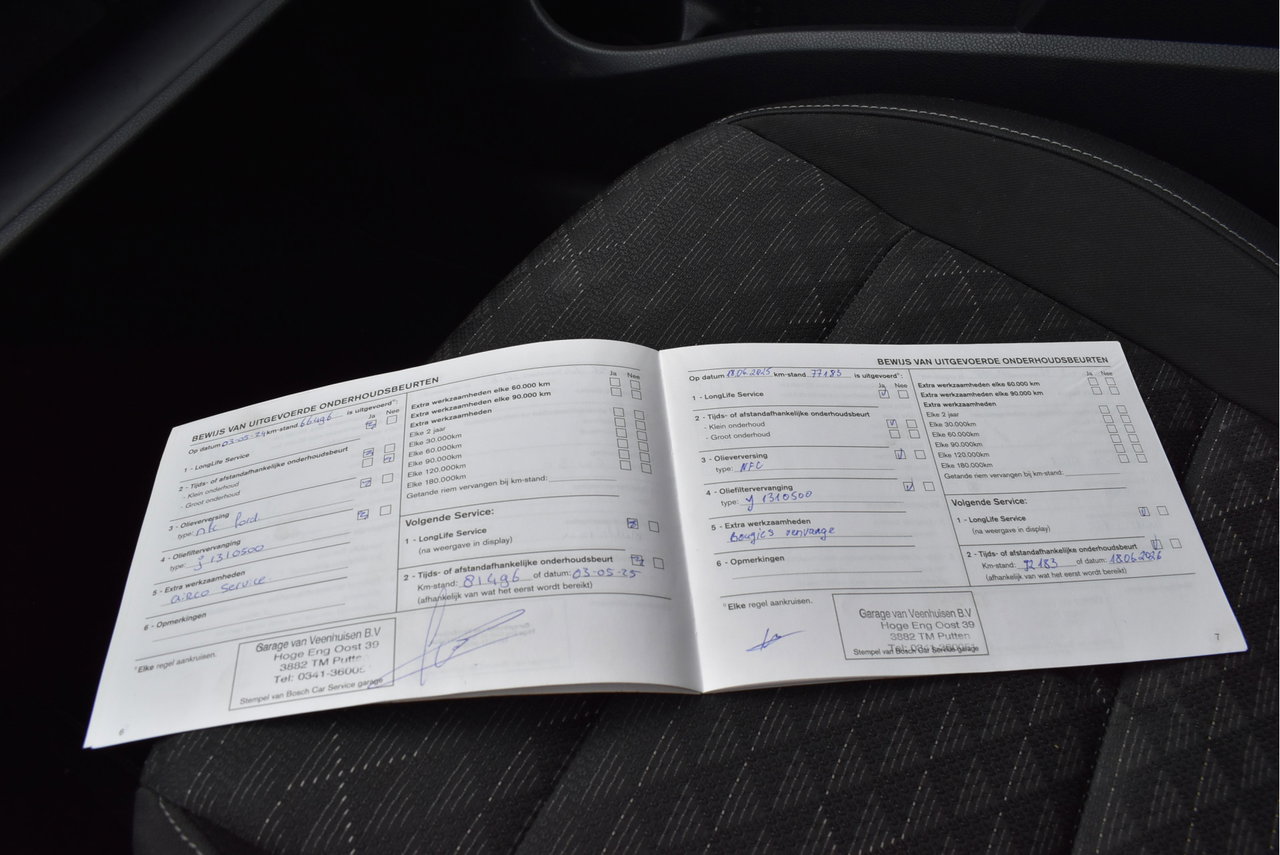 BEWIJS VAN UITGEVOERDE ONDERHOUDSBEURTEN
Op datum 03-05-24 km-stand 66496 is uitgevoerd*:
Ja Nee
1 - LongLife Service
2 - Tijds- of afstandafhankelijke onderhoudsbeurt
- Klein onderhoud
- Groot onderhoud
3 - Olieverversing
type: nfc ford
4 - Oliefiltervervanging
type: J1310500
5 - Extra werkzaamheden
airco service
6 - Opmerkingen
*Elke regel aankruisen.
Garage van Veenhuisen B.V
Hoge Eng Oost 39
3882 TM Putten
Tel: 0341-36005
Stempel van Bosch Car Service garage
6
Ja Nee
Extra werkzaamheden elke 60.000 km
Extra werkzaamheden elke 90.000 km
Extra werkzaamheden
Elke 2 jaar
Elke 30.000km
Elke 60.000km
Elke 90.000km
Elke 120.000km
Elke 180.000km
Getande riem vervangen bij km-stand:
Volgende Service:
1 - LongLife Service
(na weergave in display)
2 - Tijds- of afstandafhankelijke onderhoudsbeurt
Km-stand: 81496 of datum: 03-05-25
(afhankelijk van wat het eerst wordt bereikt)
BEWIJS VAN UITGEVOERDE ONDERHOUDSBEURTEN
Op datum 18.06.2025 km-stand 77183 is uitgevoerd*:
Ja Nee
1 - LongLife Service
2 - Tijds- of afstandafhankelijke onderhoudsbeurt
- Klein onderhoud
- Groot onderhoud
3 - Olieverversing
type: NFC
4 - Oliefiltervervanging
type: J1310500
5 - Extra werkzaamheden
Bougies
6 - Opmerkingen
*Elke regel aankruisen.
Garage van Veenhuisen B.V
Hoge Eng Oost 39
3882 TM Putten
Stempel van Bosch Car Service garage
Ja Nee
Extra werkzaamheden elke 60.000 km
Extra werkzaamheden elke 90.000 km
Extra werkzaamheden
Elke 2 jaar
Elke 30.000km
Elke 60.000km
Elke 90.000km
Elke 120.000km
Elke 180.000km
Getande riem vervangen bij km-stand:
Volgende Service:
1 - LongLife Service
(na weergave in display)
2 - Tijds- of afstandafhankelijke onderhoudsbeurt
Km-stand: of datum: 18.06.2026
(afhankelijk van wat het eerst wordt bereikt)
7